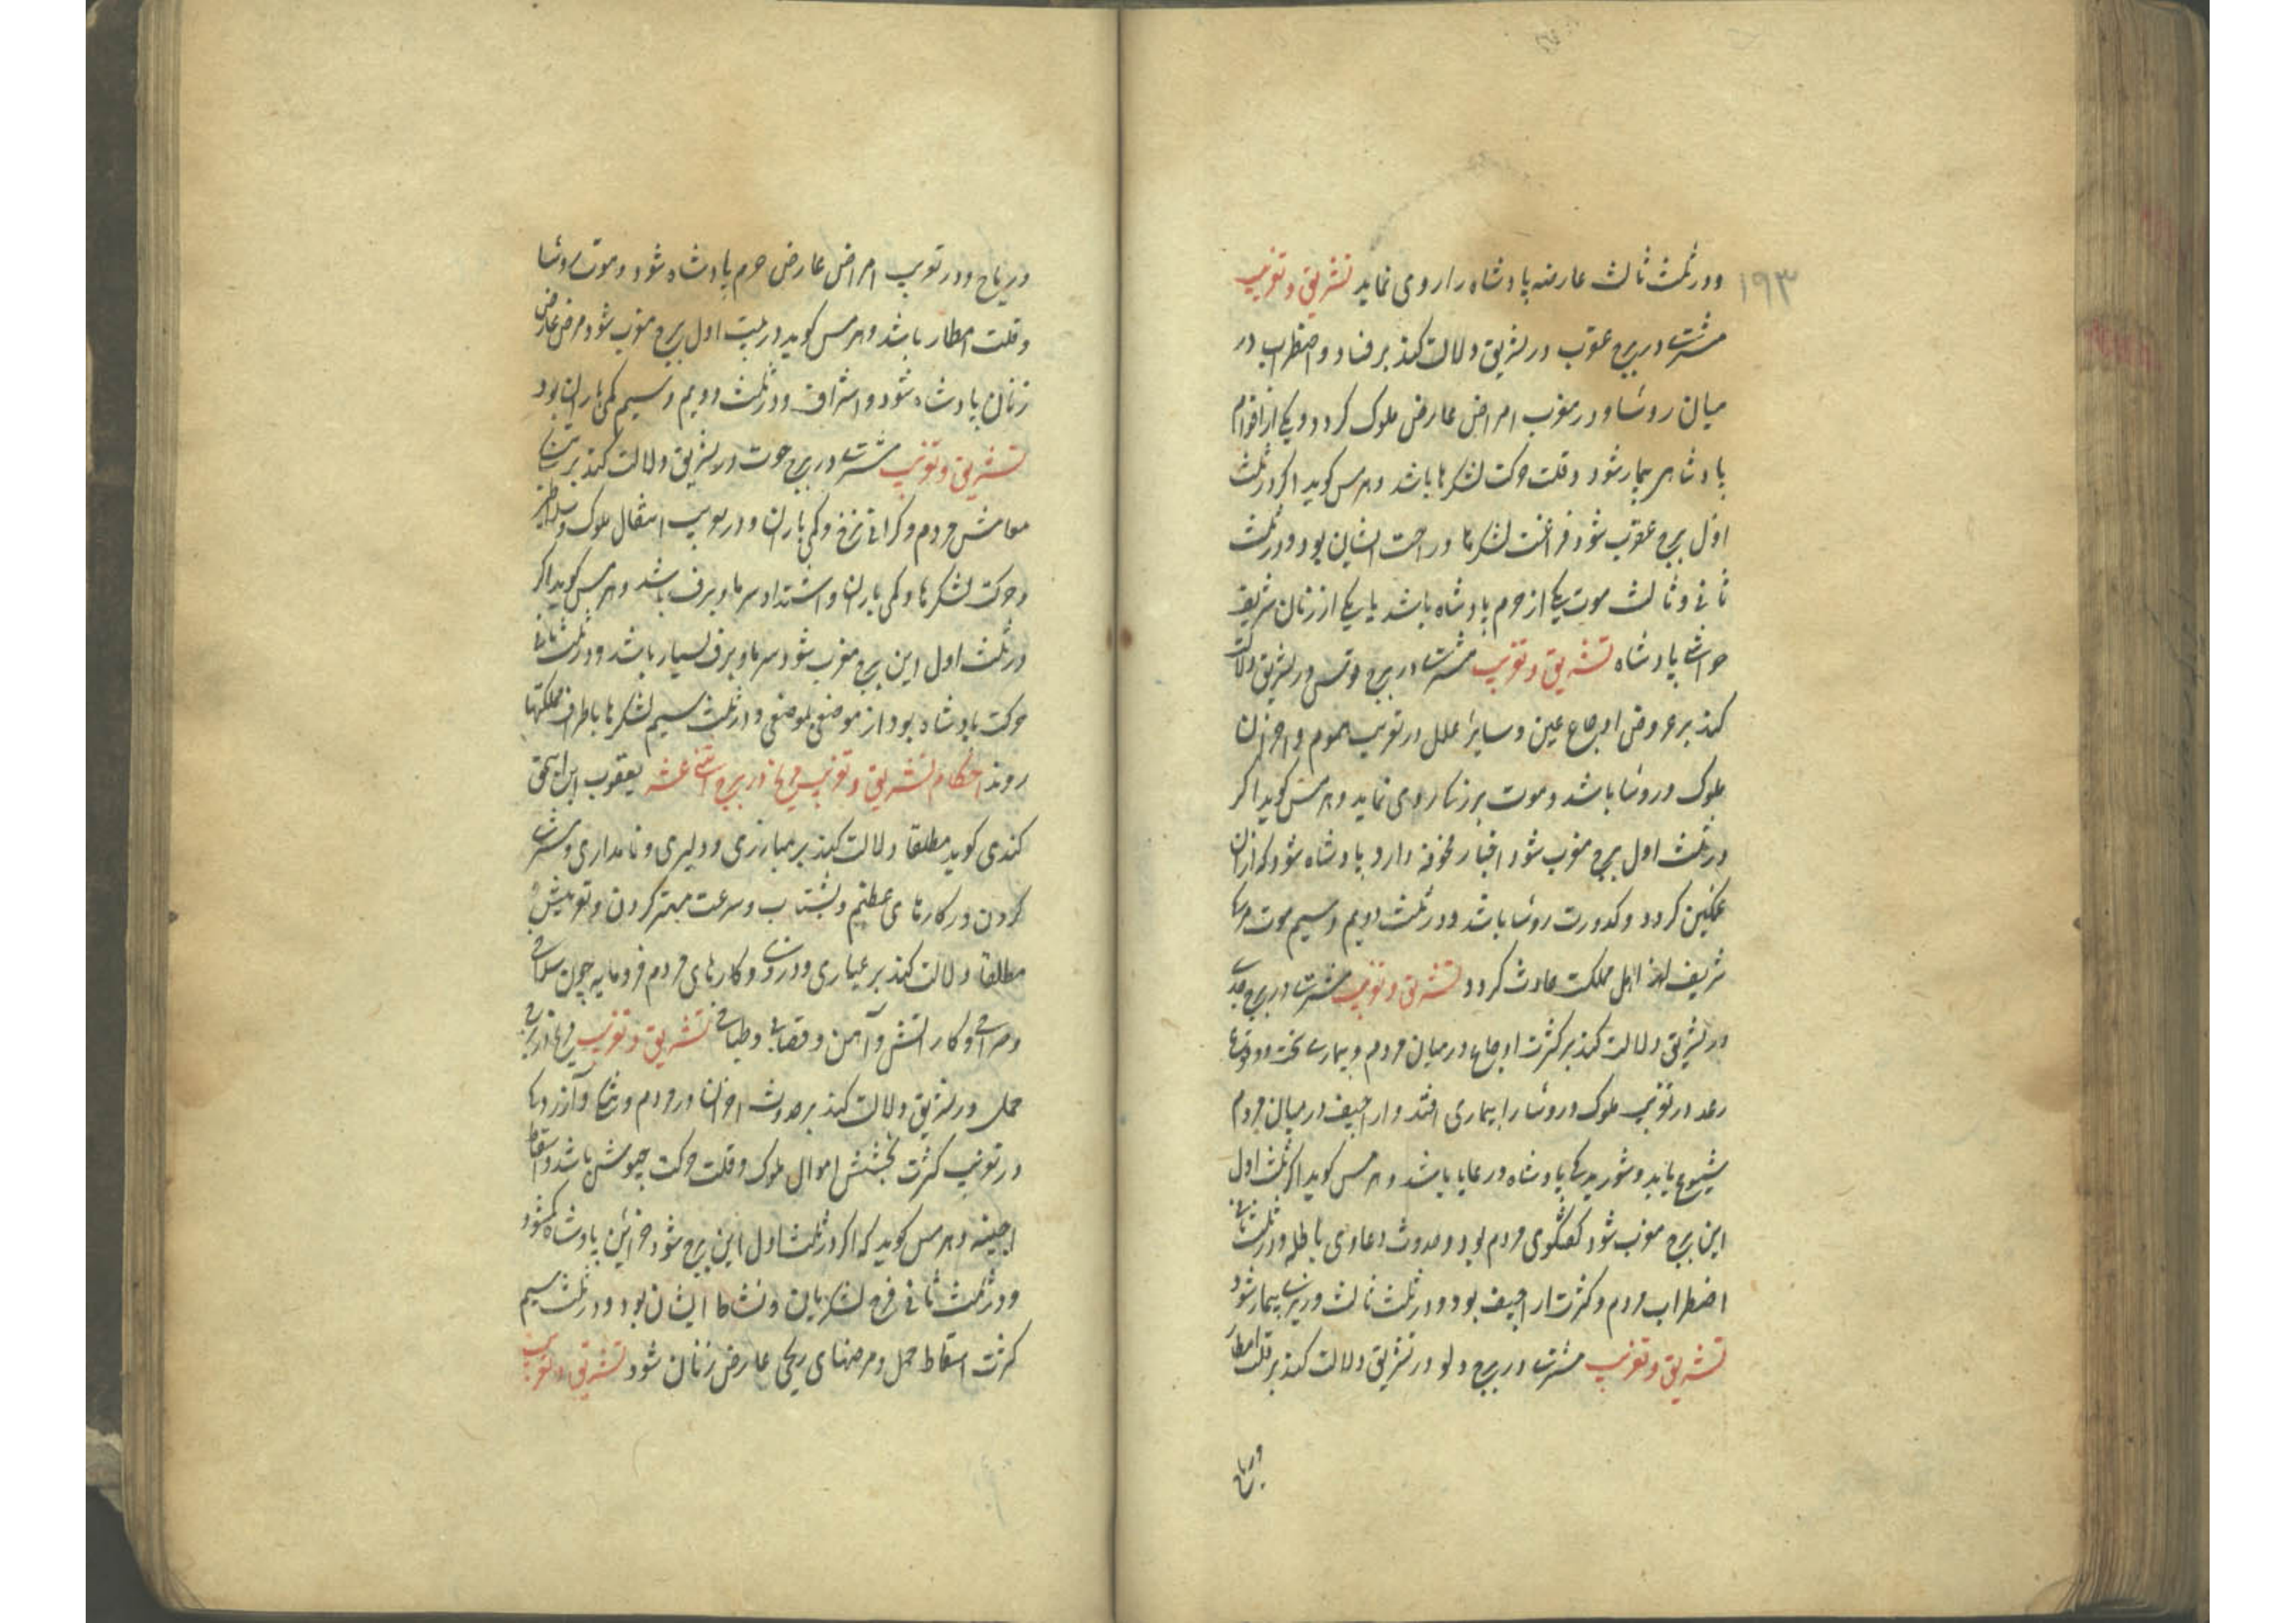 ۱۹۳
ودر ثلث ثالث عارضه پادشاه را روی نماید تشریق و تغریب
مشتری در برج عقرب در تشریق دلالت کند بر فساد و اضطراب در
میان روسا و در مغرب امراض عارض ملوک کردد و یکی از اقوام
پادشاهی بیمار شود و قلت حرکت لشکرها باشد و هرمس کوید اکر در ثلث
اول برج عقرب شود فراغت لشکرها و راحت ایشان بود و در ثلث
ثانی و ثالث موت یکی از حرم پادشاه باشد یا یکی از زنان شریفه
حواشی پادشاه تشریق و تغریب مشتری در برج قوس در تشریق دلالت
کند بر عروض اوجاع عین و سایر علل در تغریب هموم و احزان
ملوک و روسا باشد و موت بر زنان روی نماید و هرمس کوید اکر
در ثلث اول برج مغرب شود اخبار مخوفه دارد پادشاه شود که از آن
غمکین کردد و کدورت روسا باشد و در ثلث دویم و سیم موت
شریف اهل مملکت حادث کردد تشریق و تغریب مشتری در برج جدی
در تشریق دلالت کند بر کثرت اوجاع در میان مردم و بیماری سخت و وقوع
رعد در تغریب ملوک و روسا را بیماری افتد و اراجیف در میان مردم
شیوع یابد و شوریدکی پادشاه و رعایا باشد و هرمس کوید اکر ثلث اول
این برج مغرب شود کفتکوی مردم بود و حدوث دعاوی باطله و در ثلث ثانی
اضطراب مردم و کثرت اراجیف بود و در ثلث ثالث وزیری بیمار شود
تشریق و تغریب مشتری در برج دلو در تشریق دلالت کند بر قلت امطار
و ریاح
و ریاح و در تغریب امراض عارض حرم پادشاه شود و موت روسا
و قلت امطار باشد و هرمس کوید در بیت اول برج مغرب شود مرض عارض
زنان پادشاه شود و اشراف و در ثلث دویم و سیم کمی باران بود
تشریق و تغریب مشتری در برج حوت در تشریق دلالت کند بر
معاش مردم و کرانی نرخ و کمی باران و در تغریب انتقال ملوک و سلاطین
و حرکت لشکرها و کمی باران و اشتداد سرما و برف باشد و هرمس کوید اکر
در ثلث اول این برج مغرب شود سرما و برف بسیار باشد و در ثلث ثانی
حرکت پادشاه بود از موضعی بموضعی و در ثلث سیم لشکرها باطراف مملکتها
روند احکام تشریق و تغریب مریخ در بروج اثنی عشر یعقوب ابن اسحق
کندی کوید مطلقا دلالت کند بر مبارزی و دلیری و نامداری و
کردن در کارهای عظیم و بشتاب و سرعت مهتر کردن و تغریبش
مطلقا دلالت کند بر عیاری و دزدی و کارهای مردم فرومایه چون سلاخی
و صرافی و کار آتش و آهن و قصابی و طباخی تشریق و تغریب مریخ در برج
حمل در تشریق دلالت کند بر حدوث احزان در مردم و رنجها و آزردنها
در تغریب کثرت بخشش اموال ملوک و قلت حرکت جیوش باشد و اسقاط
اجنه و هرمس کوید که اکر در ثلث اول این برج شود خزاین پادشاه کم شود
و در ثلث ثانی فرح لشکریان و نشاط ایشان بود و در ثلث سیم
کثرت اسقاط حمل و مرضهای ریحی عارض زنان شود تشریق و تغریب